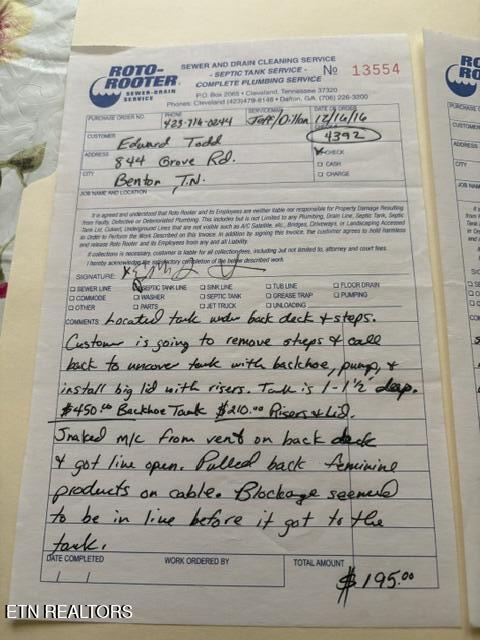 ROTO-ROOTER
SEWER-DRAIN
SERVICE
SEWER AND DRAIN CLEANING SERVICE
- SEPTIC TANK SERVICE -
COMPLETE PLUMBING SERVICE
No 13554
P.O. Box 2065 • Cleveland, Tennessee 37320
Phones: Cleveland (423)479-8148 • Dalton, GA. (706) 226-3200
PURCHASE ORDER NO. PHONE SERVICEMAN DATE OF ORDER
423-716-0244 Jeff/Dillon 12/16/16
CUSTOMER Edward Todd 4392
ADDRESS 844 Grove Rd. CHECK
CASH
CITY Benton T.N. CHARGE
JOB NAME AND LOCATION
It is agreed and understood that Roto Rooter and its Employees are neither liable nor responsible for Property Damage Resulting
from Faulty, Defective or Deteriorated Property. This includes but is not Limited to any Plumbing, Drain Line, Septic Tank, Septic
Tank Lid, Culvert, Underground Lines that are not visible such as A/C Satellite, etc., Bridges, Driveways, or Landscaping Accessed
in Order to Perform the Work Described on this Invoice. In addition by signing this invoice, the customer agrees to hold harmless
and release Roto Rooter and its Employees from any and all Liability.
If collections is necessary, customer is liable for all collection fees, including but not limited to, attorney and court fees.
I hereby acknowledge the satisfactory completion of the below described work.
SIGNATURE: X
SEWER LINE SEPTIC TANK LINE SINK LINE TUB LINE FLOOR DRAIN
COMMODE WASHER SEPTIC TANK GREASE TRAP PUMPING
OTHER PARTS JET TRUCK UNLOADING
COMMENTS Located tank under back deck & steps.
Customer is going to remove steps & call
back to uncover tank with backhoe, pump, &
install big lid with risers. Tank is 1-1½' deep.
$450.00 Backhoe Tank $210.00 Risers & Lid.
Snaked m/c from vent on back deck
& got line open. Pulled back feminine
products on cable. Blockage seemed
to be in line before it got to the
tank.
DATE COMPLETED WORK ORDERED BY TOTAL AMOUNT
/ / $195.00
ETN REALTORS